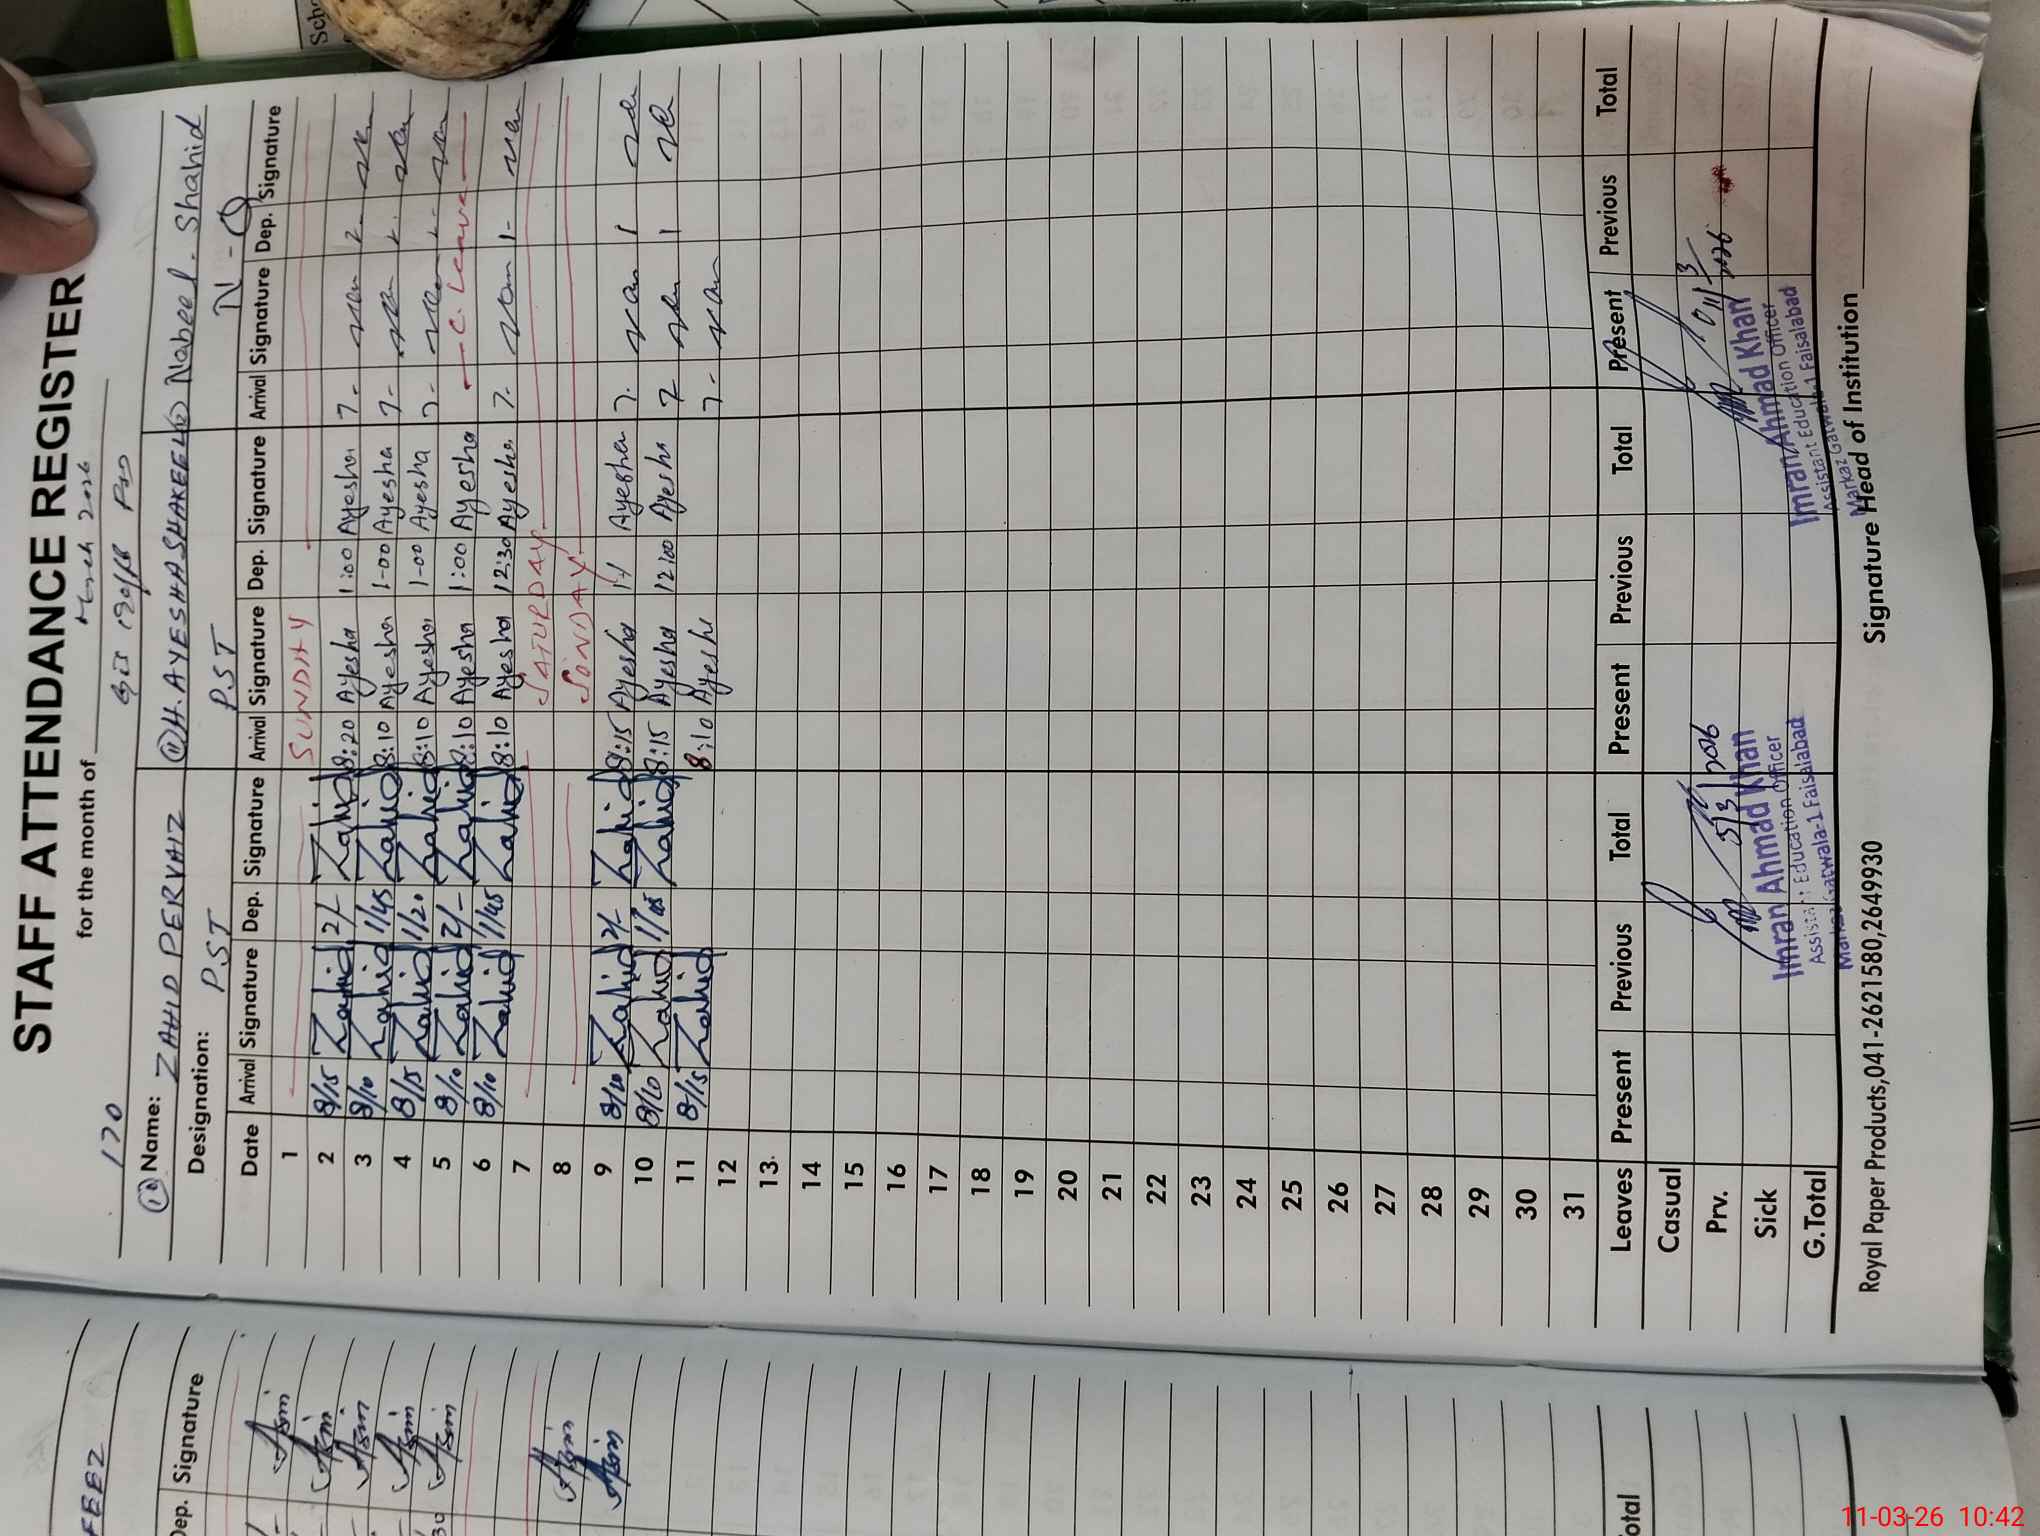 STAFF ATTENDANCE REGISTER
for the month of March 2026
170
(10) Name: ZAHID PERVAIZ (11) H. AYESHA SHAKEEL (12) Nabeel. Shahid
Designation: PST PST N-Q
Date Arrival Signature Dep. Signature Arrival Signature Dep. Signature Arrival Signature Dep. Signature
1 SUNDAY
2 8/15 Zahid 2/- Zahid 8:20 Ayesha 1:00 Ayesha 7-
3 8/10 Zahid 1/45 Zahid 8:10 Ayesha 1-00 Ayesha 7-
4 8/15 Zahid 1/20 Zahid 8:10 Ayesha 1-00 Ayesha 7-
5 8/10 Zahid 2/- Zahid 8:10 Ayesha 1:00 Ayesha C. Leave
6 8/10 Zahid 1/45 Zahid 8:10 Ayesha 12:30 Ayesha 7- 1-
7 SATURDAY
8 SUNDAY
9 8/10 Zahid 2/- Zahid 8:15 Ayesha Ayesha 7- 1
10 8/10 Zahid 1/05 Zahid 8:15 Ayesha 12:00 Ayesha 7 1
11 8/15 Zahid 8:10 Ayesha 7-
12
13
14
15
16
17
18
19
20
21
22
23
24
25
26
27
28
29
30
31
Leaves Present Previous Total Present Previous Total Present Previous Total
Casual
Prv.
Sick
G.Total
5/3/2026
Imran Ahmad Khan
Assistant Education Officer
Markaz Gatwala-1 Faisalabad
11/3/2026
Imran Ahmad Khan
Assistant Education Officer
Markaz Gatwala-1 Faisalabad
Royal Paper Products,041-2621580,2649930 Signature Head of Institution
FEEZ
Dep. Signature
Asim
Asim
Asim
Asim
Asim
Asim
Asim
otal Total
11-03-26 10:42